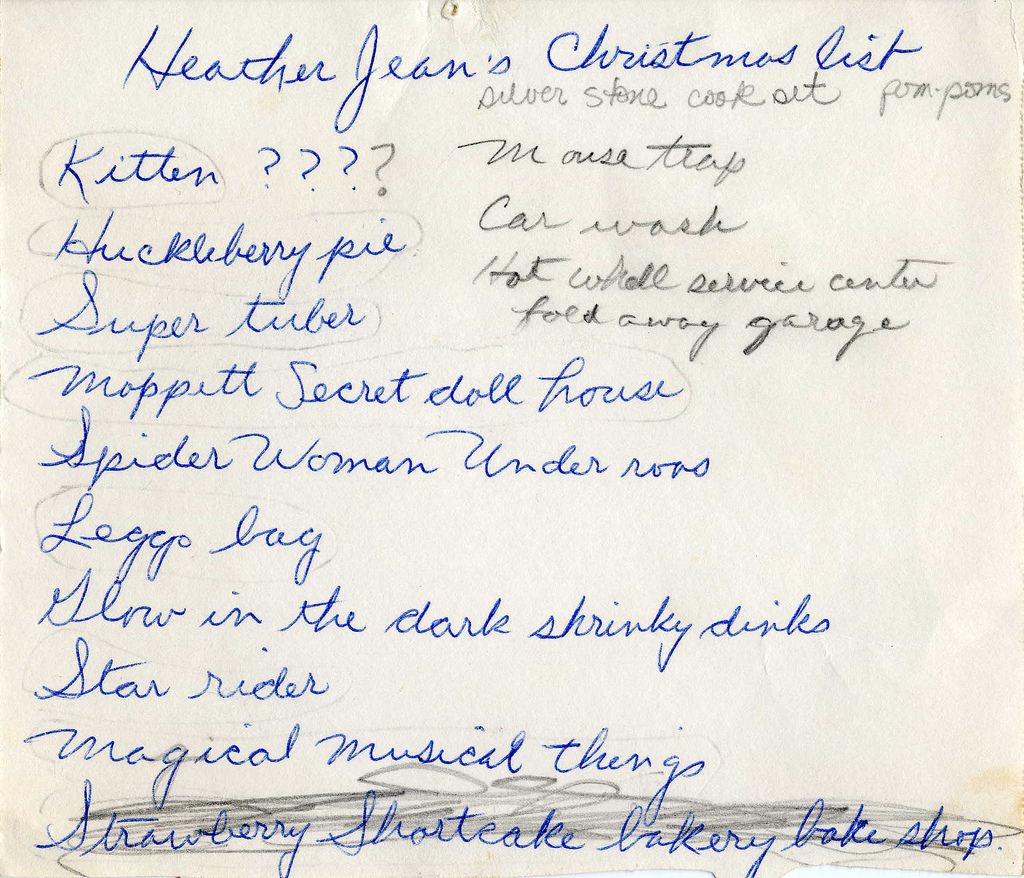 Heather Jean's Christmas list
silver stone cook set pom-poms
Kitten ????
Mouse trap
Huckleberry pie
Car wash
Super tuber
Hot Whell service center
fold away garage
Moppett Secret doll house
Spider Woman Under roos
Leggo bag
Glow in the dark shrinky dinks
Star rider
Magical musical things
Strawberry Shortcake bakery bake shop.